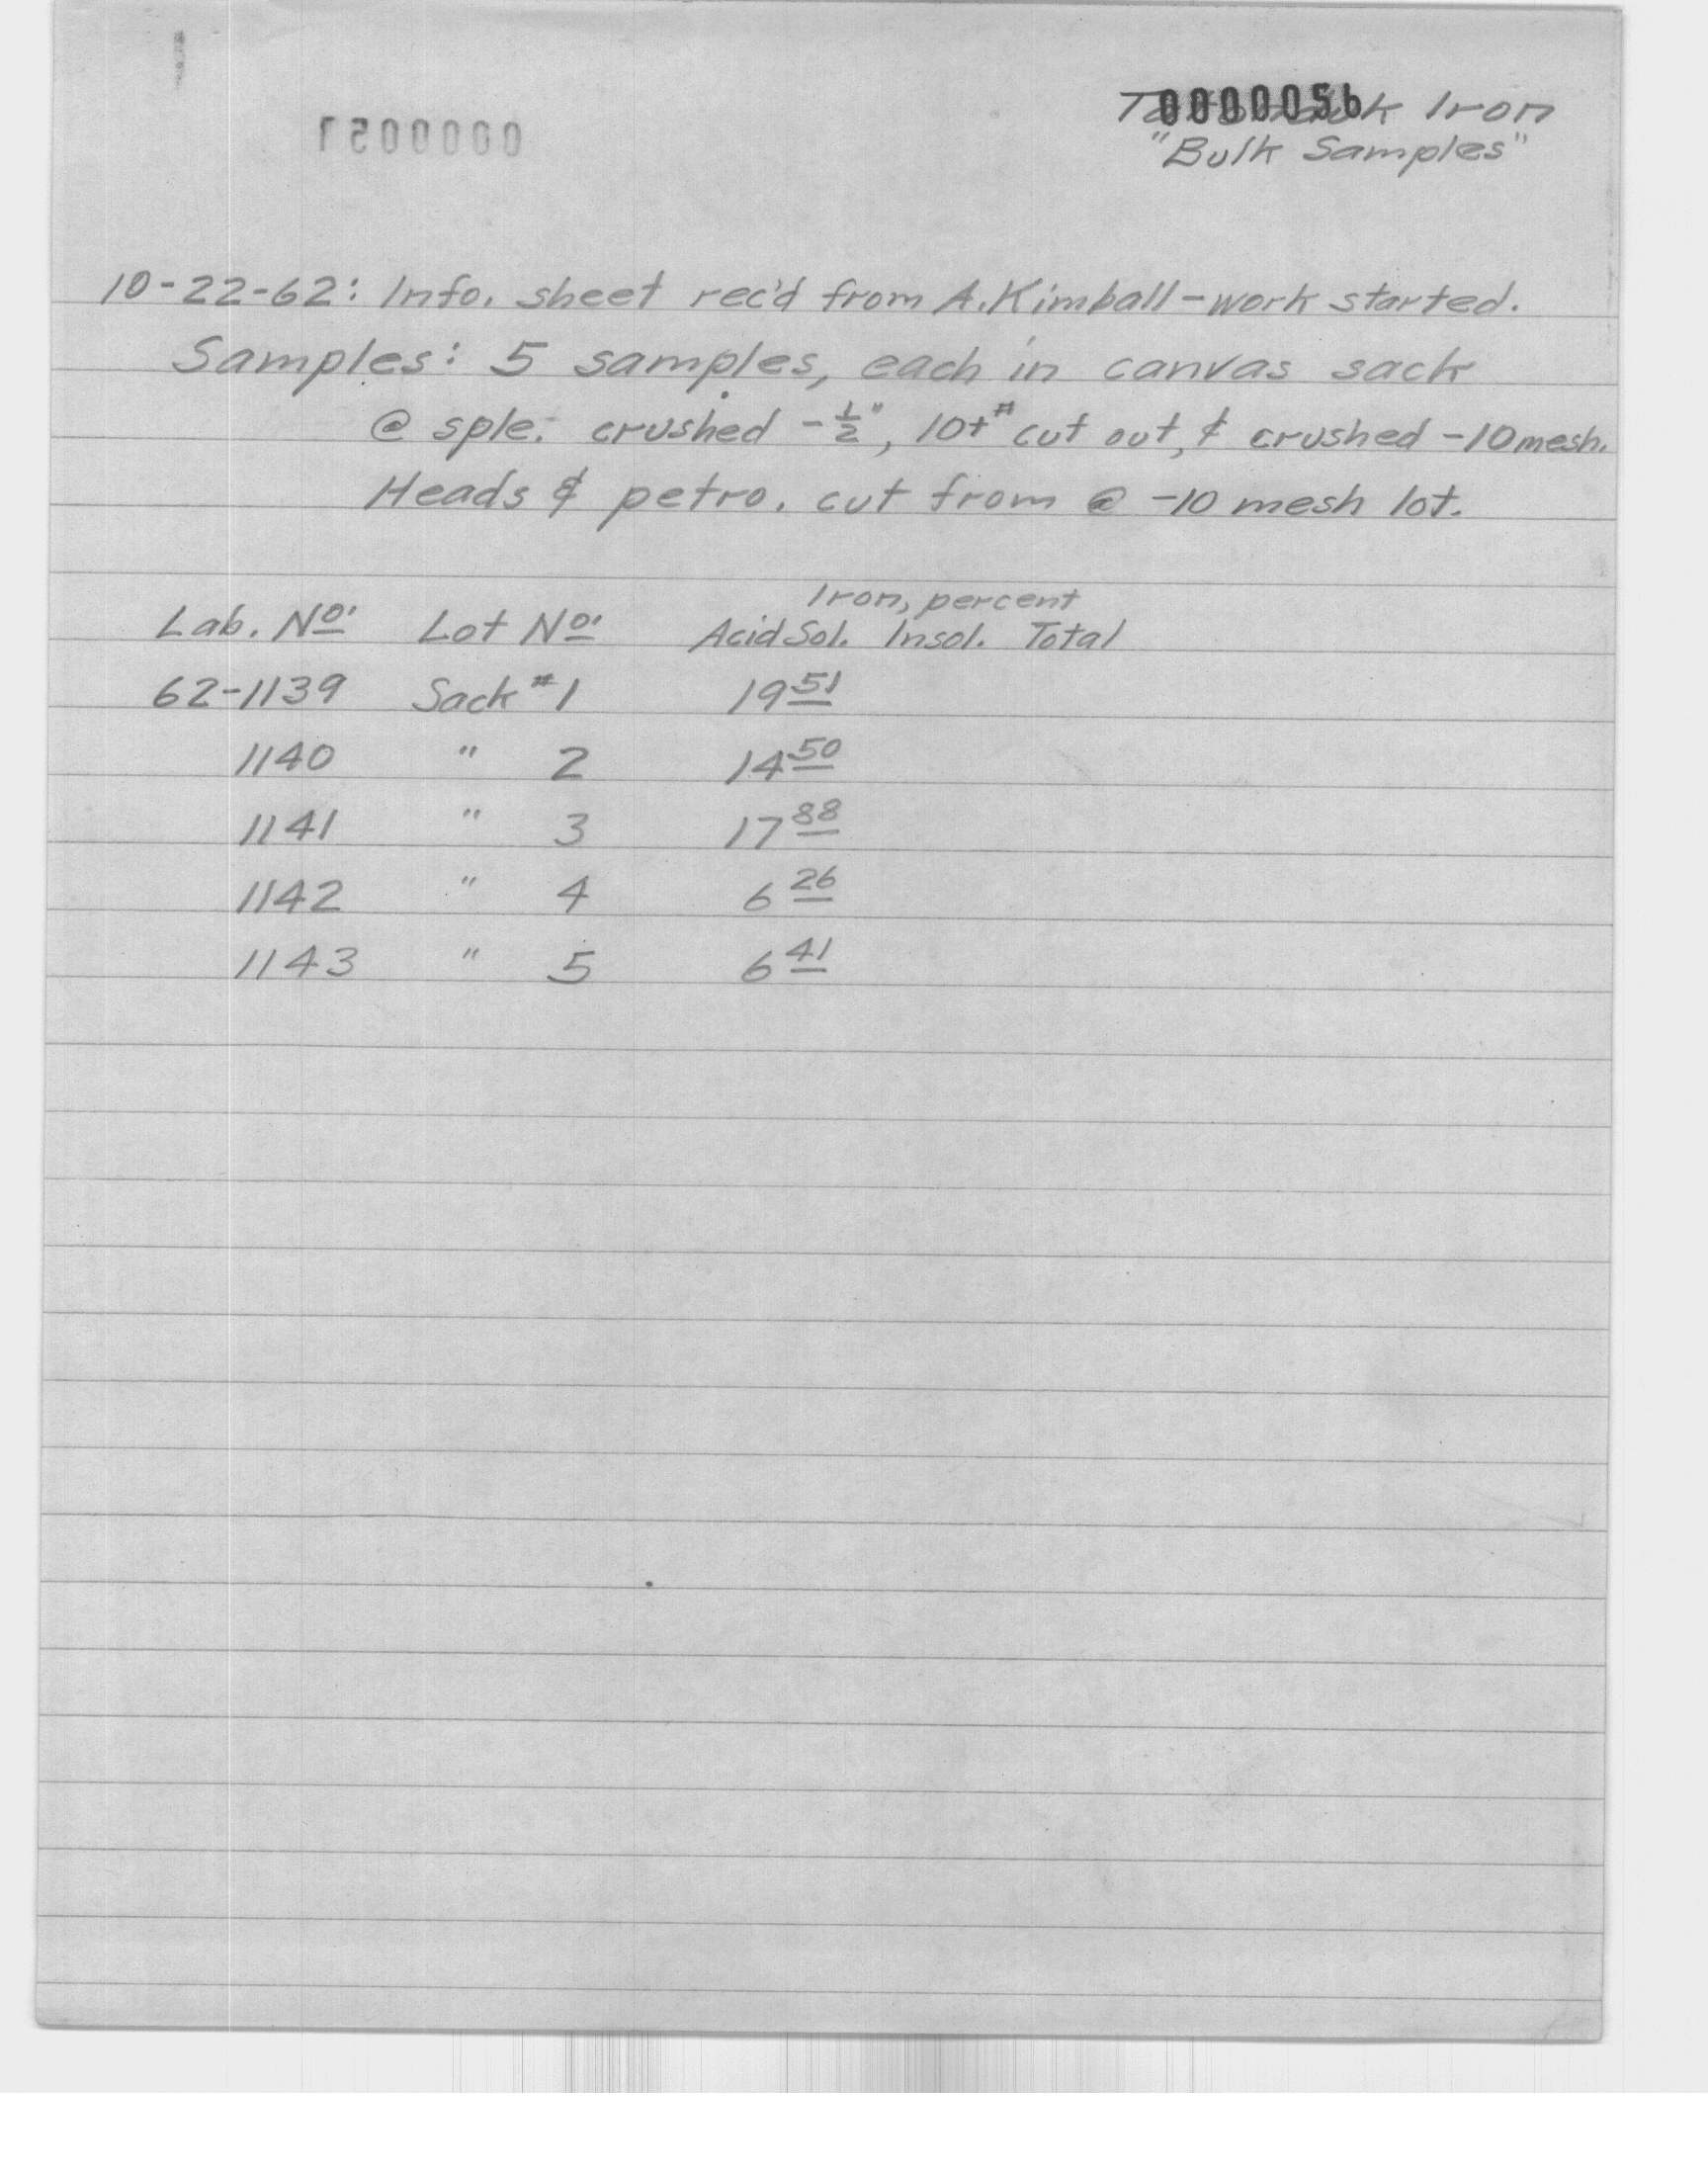 0000056
Iron
"Bulk Samples"
0000057
10-22-62: Info. sheet rec'd from A. Kimball - work started.
Samples: 5 samples, each in canvas sack
@ sple. crushed -½", 10+# cut out, & crushed -10 mesh.
Heads & petro. cut from @ -10 mesh lot.
Iron, percent
Lab. No. Lot No. Acid Sol. Insol. Total
62-1139 Sack #1 19 51
1140 " 2 14 50
1141 " 3 17 88
1142 " 4 6 26
1143 " 5 6 41